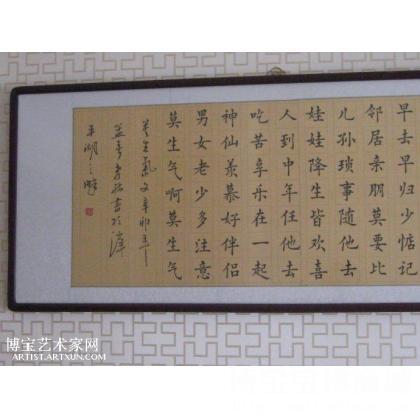 早去早归少惦记
邻居亲朋莫要比
儿孙琐事随他去
娃娃降生皆欢喜
人到中年任他去
吃苦享乐在一起
神仙羡慕好伴侣
男女老少多注意
莫生气啊莫生气
莫生气文辛卯年
平湖之畔
博宝艺术家网
ARTIST.ARTXUN.COM